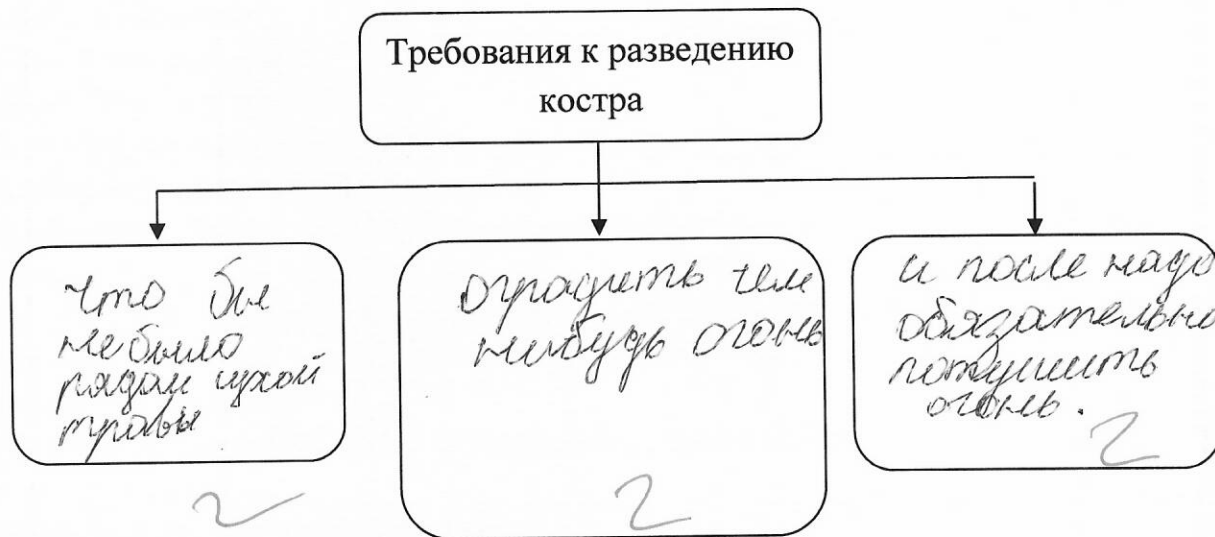 Требования к разведению
костра
что бы
небыло
рядом сухой
травы
оградить чем
нибудь огонь
и после надо
обязательно
потушить
огонь.
2
2
2